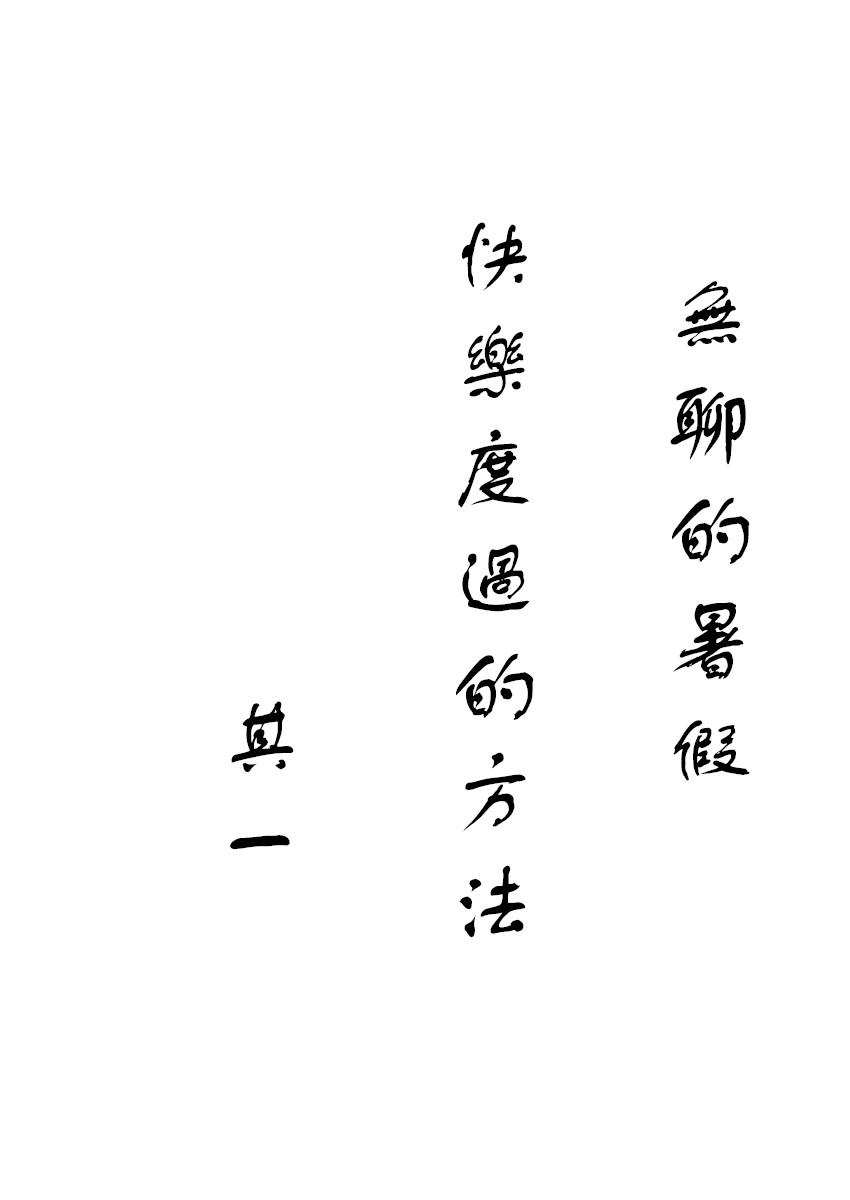 無聊的暑假
快樂度過的方法
其一